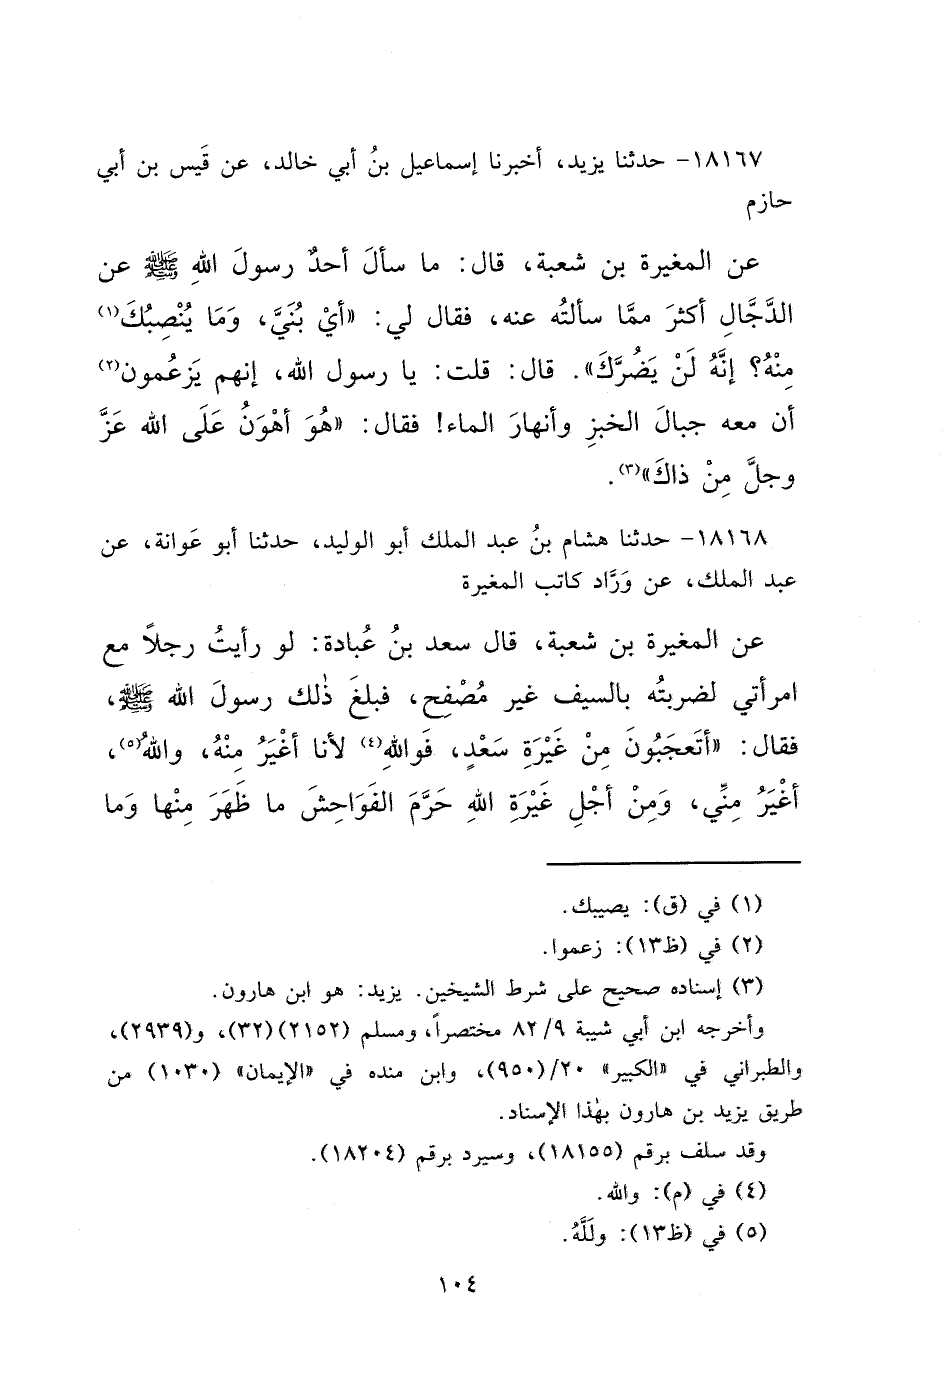 ١٨١٦٧- حدثنا يزيد، أخبرنا إسماعيل بنُ أبي خالد، عن قَيس بن أبي
حازم
عن المغيرة بن شعبة، قال: ما سألَ أحدٌ رسولَ اللهِ ﷺ عن
الدَّجَّالِ أكثرَ ممَّا سألتُه عنه، فقال لي: «أيْ بُنَيَّ، وَمَا يُنْصِبُكَ(١)
مِنْهُ؟ إنَّهُ لَنْ يَضُرَّكَ». قال: قلت: يا رسول الله، إنهم يَزعُمون(٢)
أن معه جبالَ الخبزِ وأنهارَ الماء! فقال: «هُوَ أهْوَنُ عَلَى الله عَزَّ
وجلَّ مِنْ ذاكَ»(٣).
١٨١٦٨- حدثنا هشام بنُ عبد الملك أبو الوليد، حدثنا أبو عَوانة، عن
عبد الملك، عن وَرَّاد كاتب المغيرة
عن المغيرة بن شعبة، قال سعد بنُ عُبادة: لو رأيتُ رجلاً مع
امرأتي لضربتُه بالسيف غير مُصْفِح، فبلغَ ذٰلك رسولَ الله ﷺ،
فقال: «أتَعجَبُونَ مِنْ غَيْرَةِ سَعْدٍ، فَواللهِ(٤) لأنا أغْيَرُ مِنْهُ، واللهُ(٥)،
أغْيَرُ مِنِّي، وَمِنْ أجْلِ غَيْرَةِ اللهِ حَرَّمَ الفَوَاحِشَ ما ظَهَرَ مِنْها وَما
(١) في (ق): يصيبك.
(٢) في (ظ١٣): زعموا.
(٣) إسناده صحيح على شرط الشيخين. يزيد: هو ابن هارون.
وأخرجه ابن أبي شيبة ٨٢/٩ مختصراً، ومسلم (٢١٥٢)(٣٢)، و(٢٩٣٩)،
والطبراني في «الكبير» ٢٠/(٩٥٠)، وابن منده في «الإيمان» (١٠٣٠) من
طريق يزيد بن هارون بهٰذا الإسناد.
وقد سلف برقم (١٨١٥٥)، وسيرد برقم (١٨٢٠٤).
(٤) في (م): والله.
(٥) في (ظ١٣): ولَلَّهُ.
١٠٤